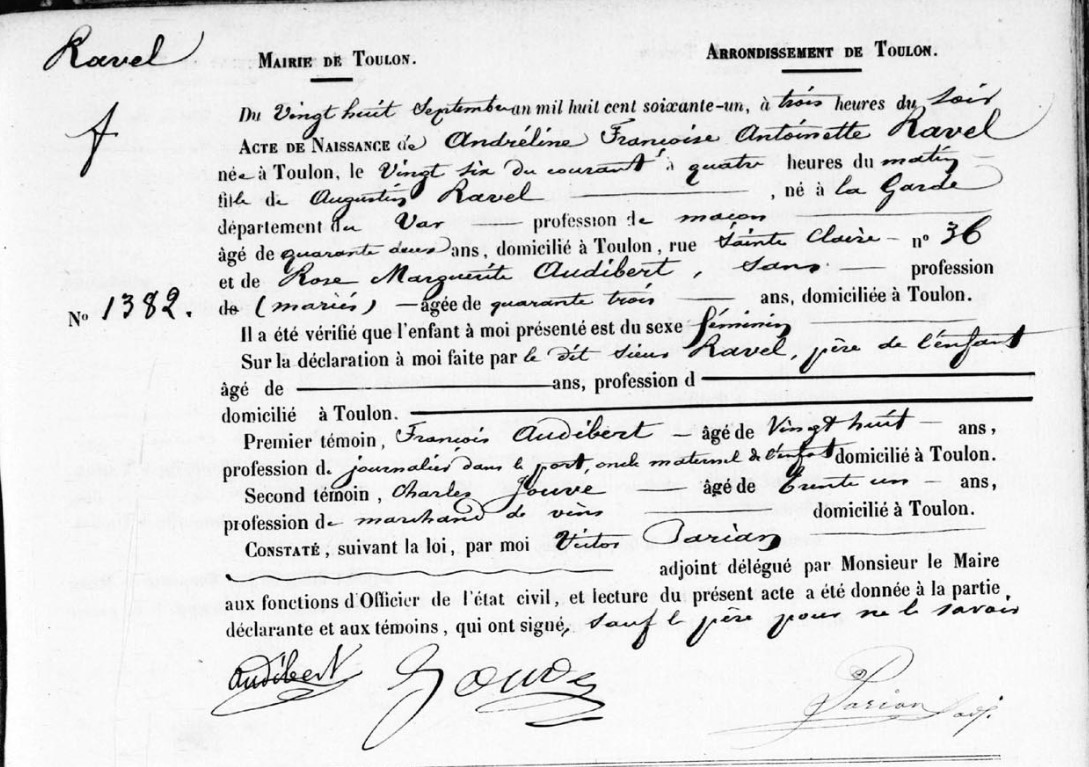 Ravel
MAIRIE DE TOULON.
ARRONDISSEMENT DE TOULON.
f
Du Vingt huit Septembre an mil huit cent soixante-un, à trois heures du soir
ACTE DE NAISSANCE de Andréline Françoise Antoinette Ravel
née à Toulon, le Vingt six du courant à quatre heures du matin
fille de Augustin Ravel, né à la Garde
département du Var profession de maçon
âgé de quarante deux ans, domicilié à Toulon, rue Sainte Claire - n° 36
et de Rose Marguerite Audibert, sans profession
N° 1382.
de (mariés) âgée de quarante trois ans, domiciliée à Toulon.
Il a été vérifié que l'enfant à moi présenté est du sexe féminin
Sur la déclaration à moi faite par le dit sieur Ravel, père de l'enfant
âgé de ans, profession d
domicilié à Toulon.
Premier témoin, François Audibert - âgé de Vingt huit - ans,
profession de journalier dans le port, oncle maternel de l'enfant domicilié à Toulon.
Second témoin, Charles Jouve âgé de trente un - ans,
profession de marchand de vins domicilié à Toulon.
CONSTATÉ, suivant la loi, par moi Victor Parian
adjoint délégué par Monsieur le Maire
aux fonctions d'Officier de l'état civil, et lecture du présent acte a été donnée à la partie
déclarante et aux témoins, qui ont signé, sauf le père pour ne le savoir
Audibert Parian adj.